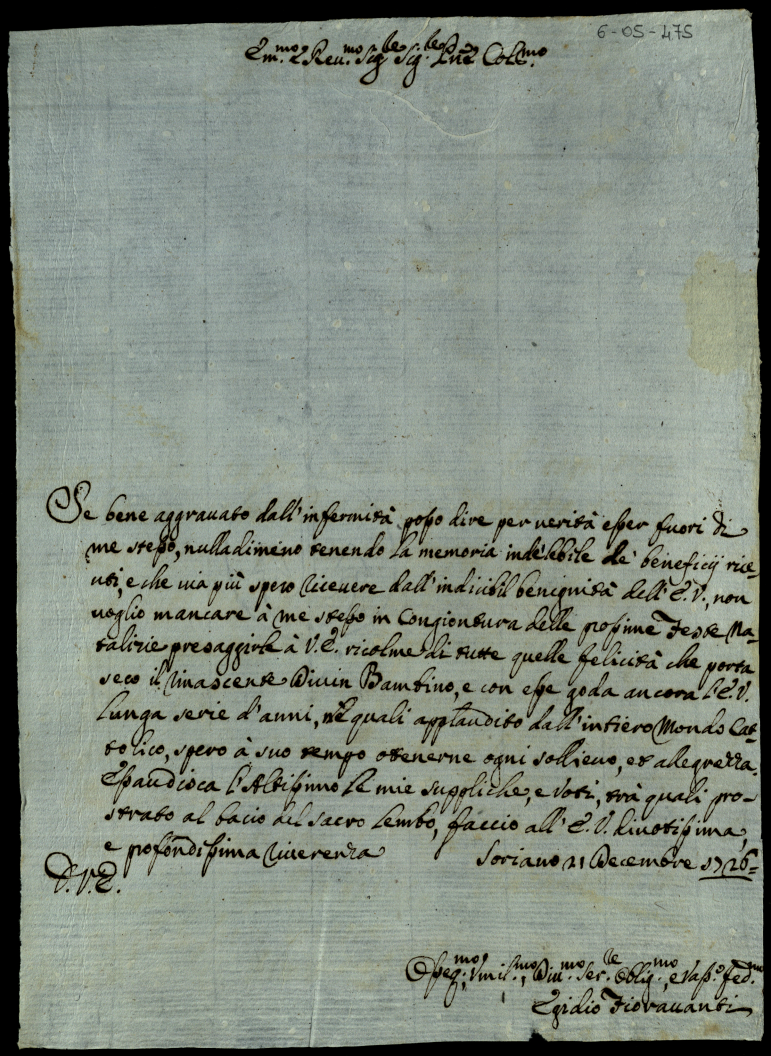 6-05-475
Em.mo e Reu.mo Sig.re Sig.re Pne Coll.mo
Se bene aggrauato dall'infermità posso dire per uerità esser fuori di
me stesso, nulladimeno tenendo la memoria indelebile de' beneficij rice-
uti, e che uia più spero riceuere dall'indicibil benignità dell'E.V., non
uoglio mancare à me stesso in Congiontura delle prossime Feste Na-
talizie presaggirle à V.E. ricolme di tutte quelle felicità che porta
seco il rinascente Diuin Bambino, e con esse goda ancora l'E.V.
lunga serie d'anni, nè quali applaudito dall'intiero Mondo Cat-
tolico, spero à suo tempo ottenerne ogni sollieuo, et allegrezza.
Essaudisca l'Altissimo le mie suppliche, e Voti, trà quali pro-
strato al bacio del sacro Lembo, faccio all'E.V. diuotissima,
e profondissima riuerenza Soriano 21 Decembre 1726
D.V.E.
Osseq.mo, Vmil.mo, Diu.mo Ser.re Oblig.mo, e Vass.o Fed.mo
Egidio Fiorauanti